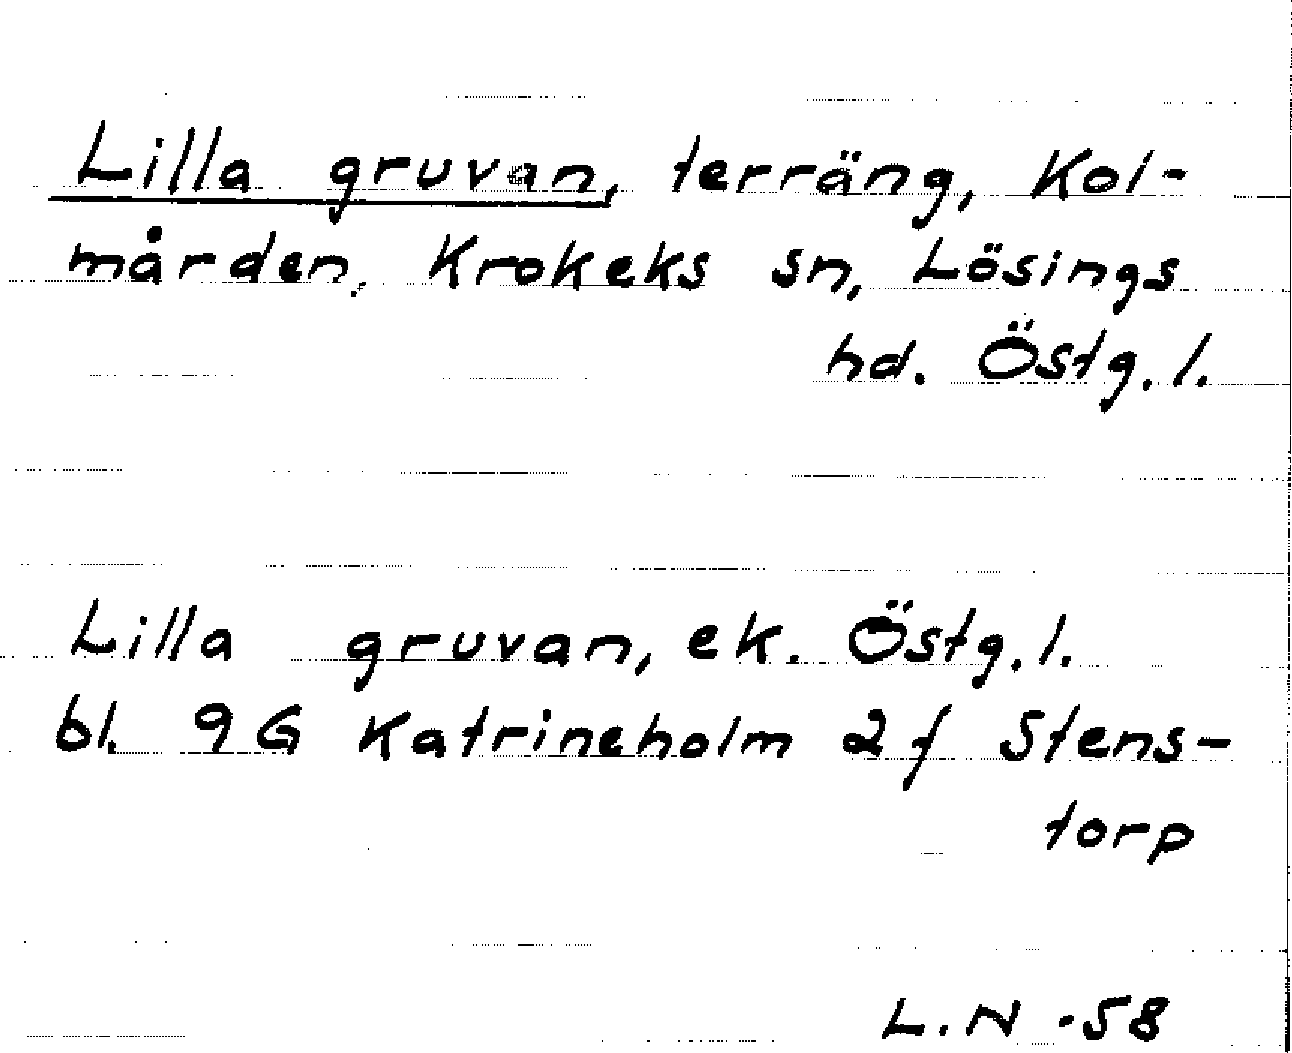 Lilla gruvan, terräng, Kol-
mården, Krokeks sn, Lösings
hd. Östg.l.
Lilla gruvan, ek. Östg.l.
bl. 9G Katrineholm 2f Stens-
torp
L.N -58